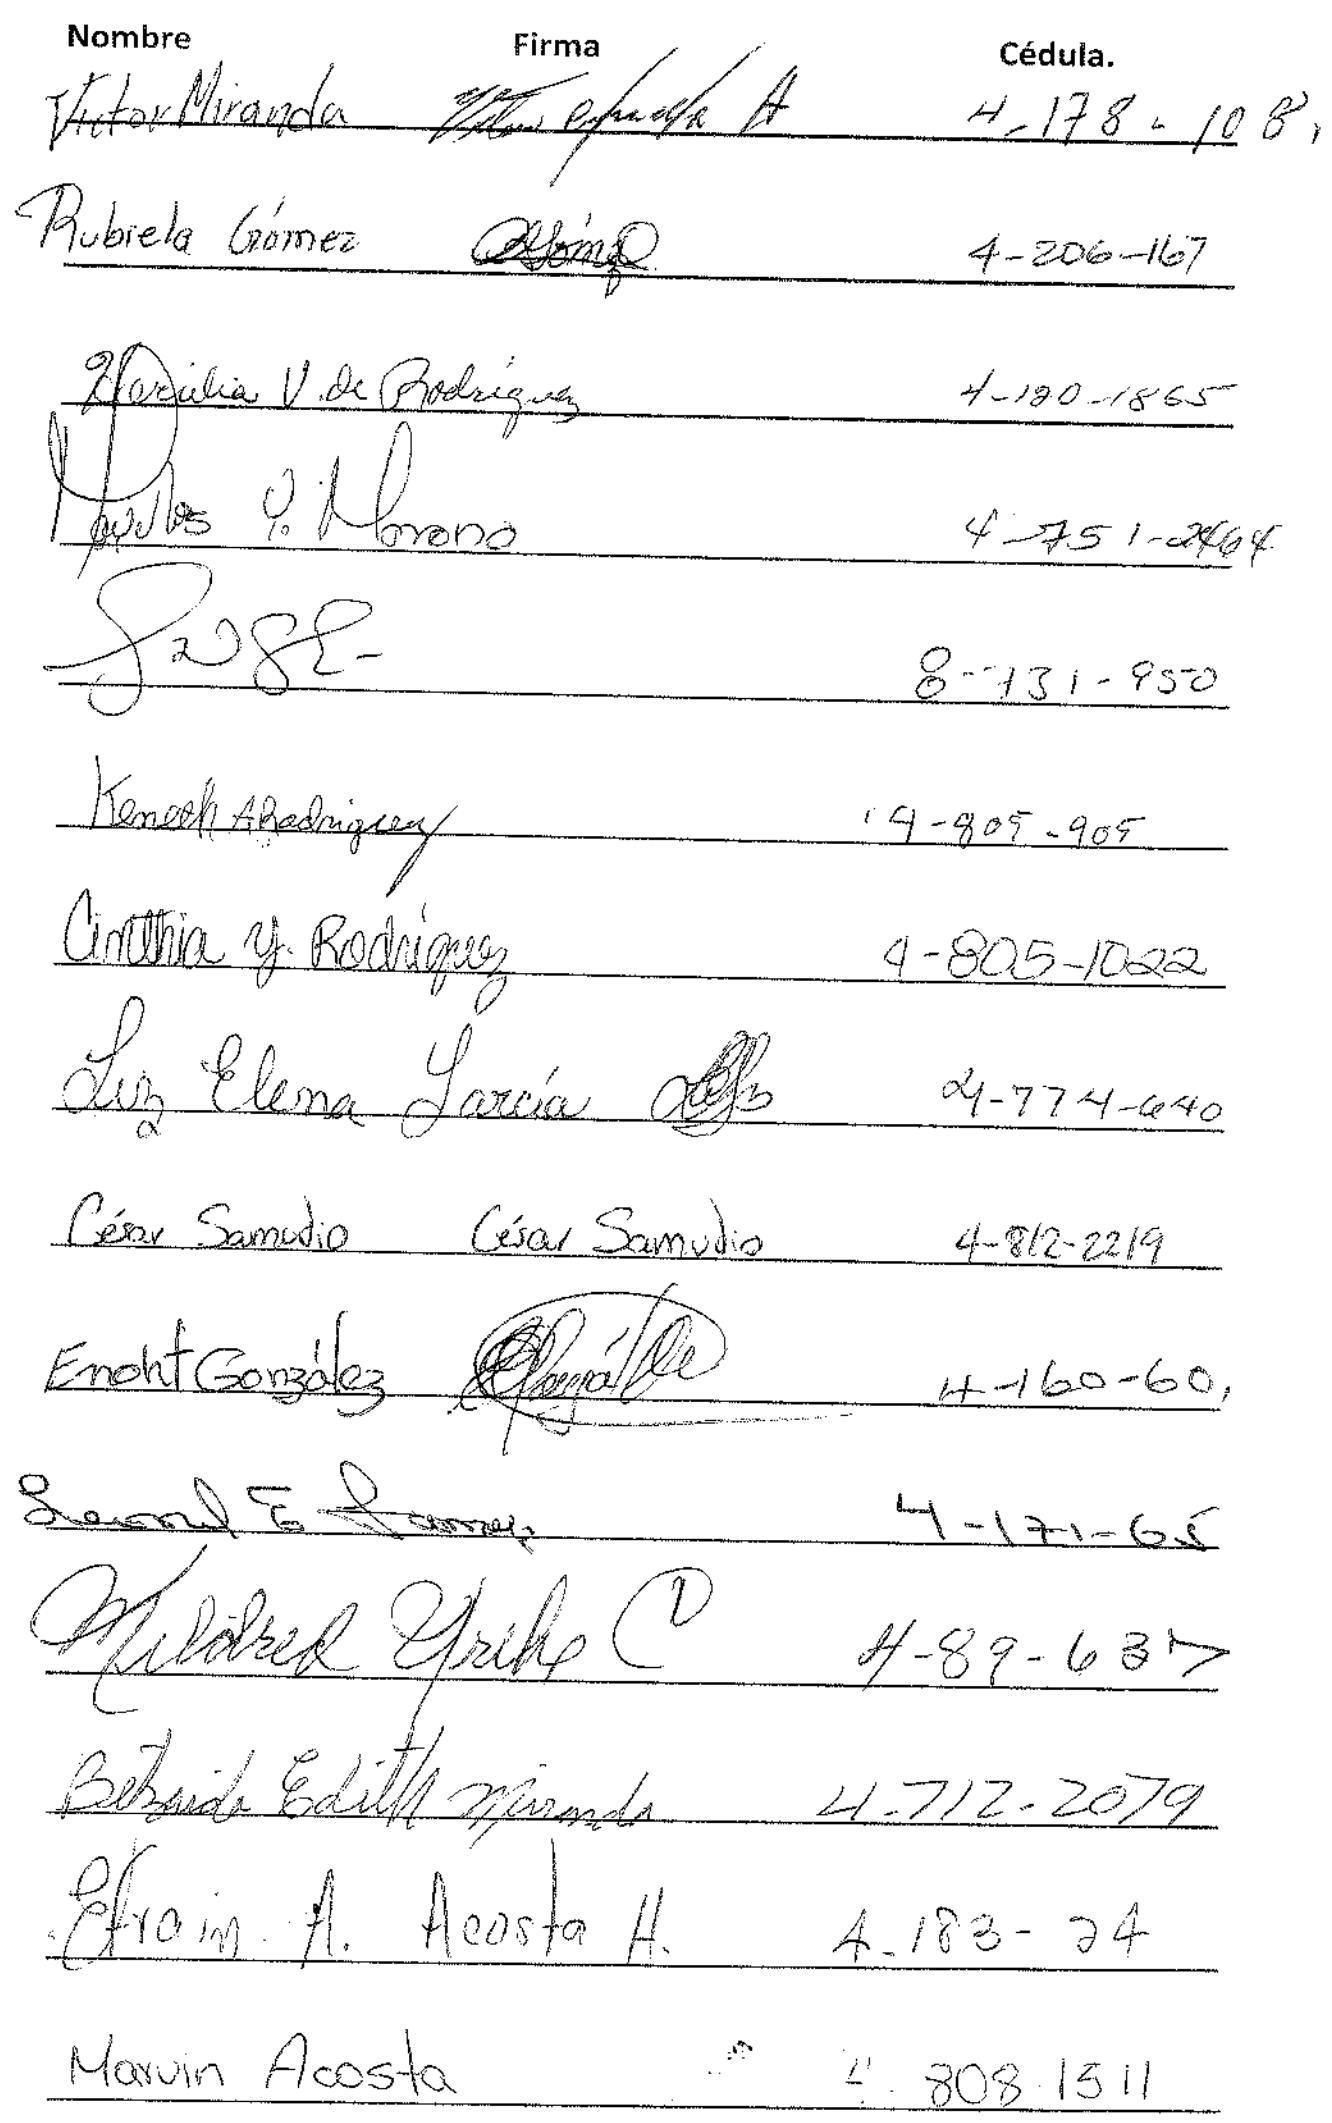 Nombre Firma Cédula.
Victor Miranda 4-178-108,
Rubiela Gómez 4-206-167
V. de Rodríguez 4-190-1865
Moreno 4-751-2464
8-731-950
Keneth A Rodriguez 4-805-905
Cinthia Y. Rodríguez 4-805-1022
Luz Elena García 4-774-640
César Samudio César Samudio 4-812-2219
Enoht González 4-160-60,
E 4-171-65
Mildred Uribe C 4-89-637
Betzaida Edith Miranda 4-712-2079
Efrain A. Acosta H. 4-183-24
Marvin Acosta 4 808 1511